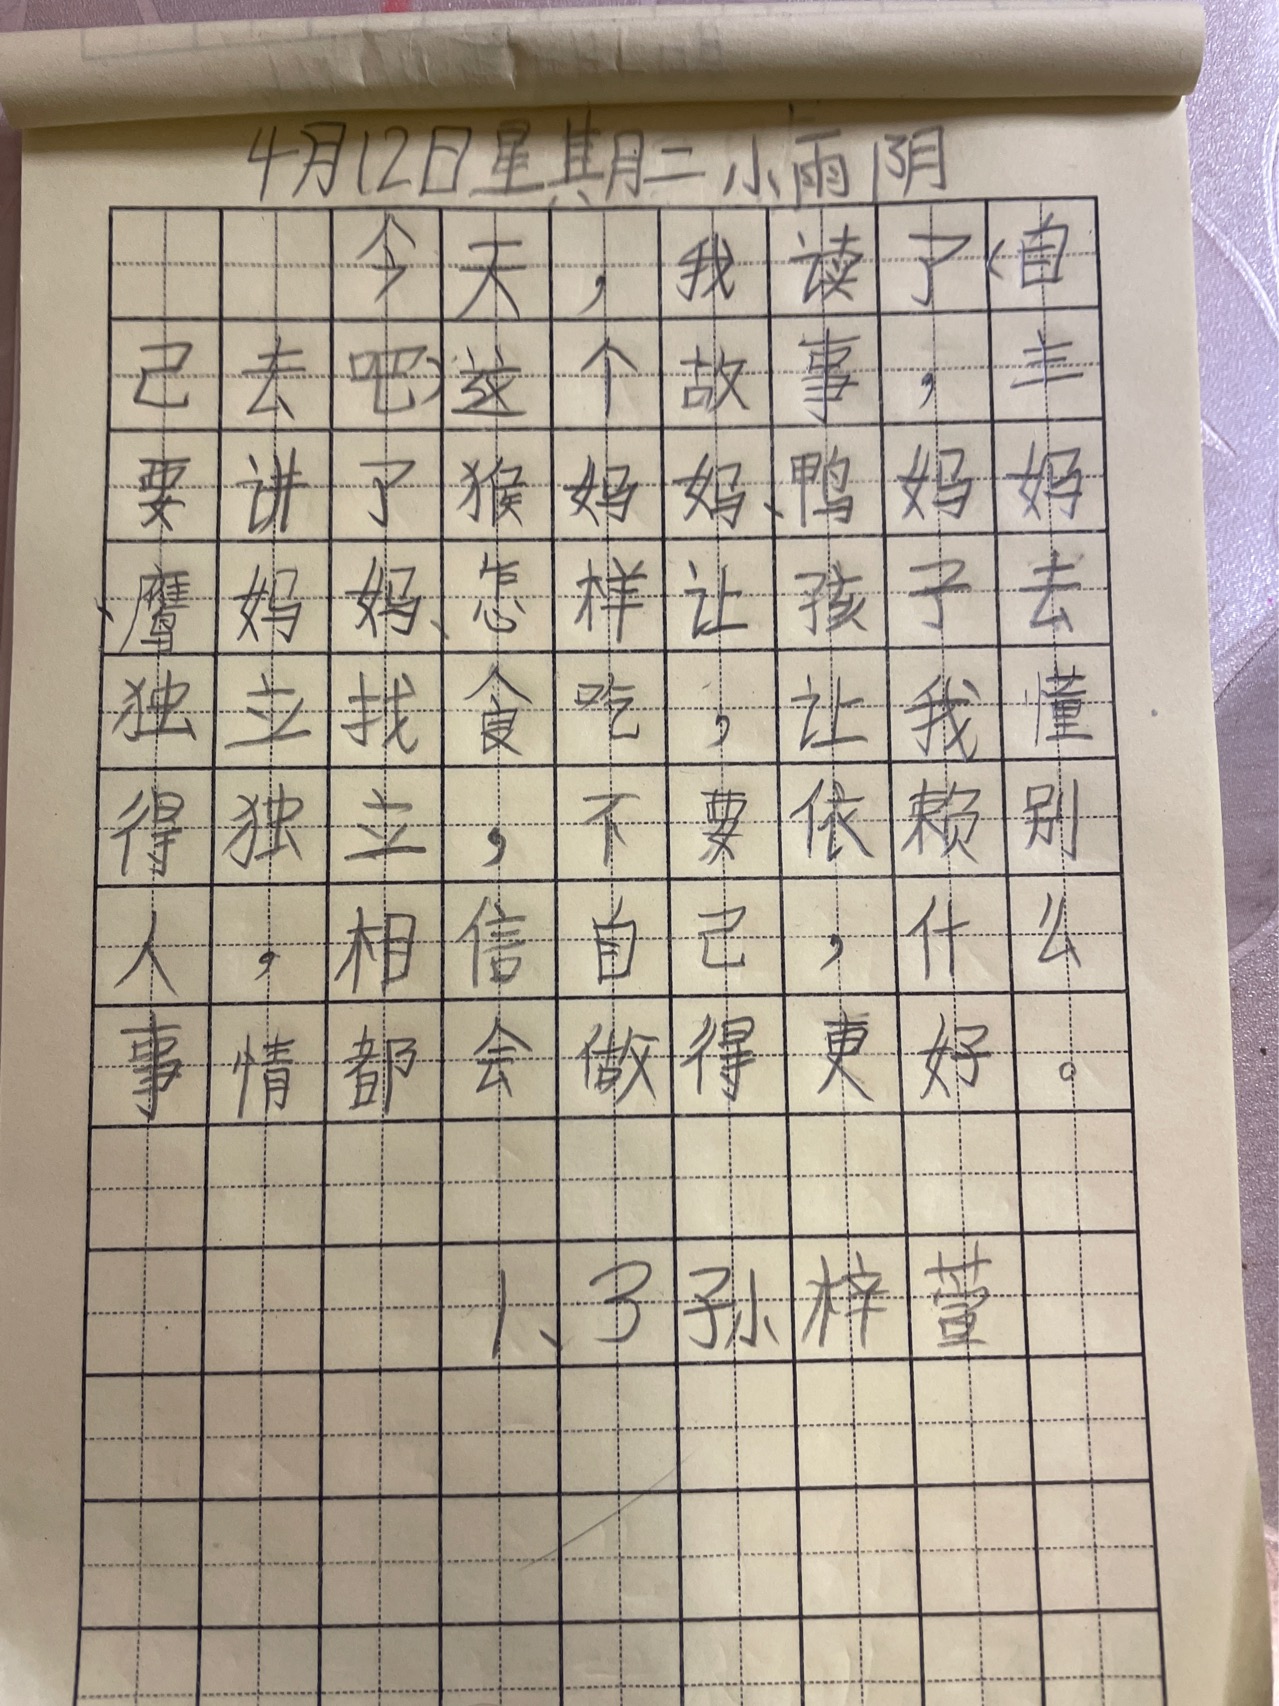 4月12日星期二 小雨 阴
今天，我读了〈自
己去吧〉这个故事，主
要讲了猴妈妈、鸭妈妈
、鹰妈妈、怎样让孩子去
独立找食吃，让我懂
得独立，不要依赖别
人，相信自己，什么
事情都会做得更好。
1、3孙梓萱